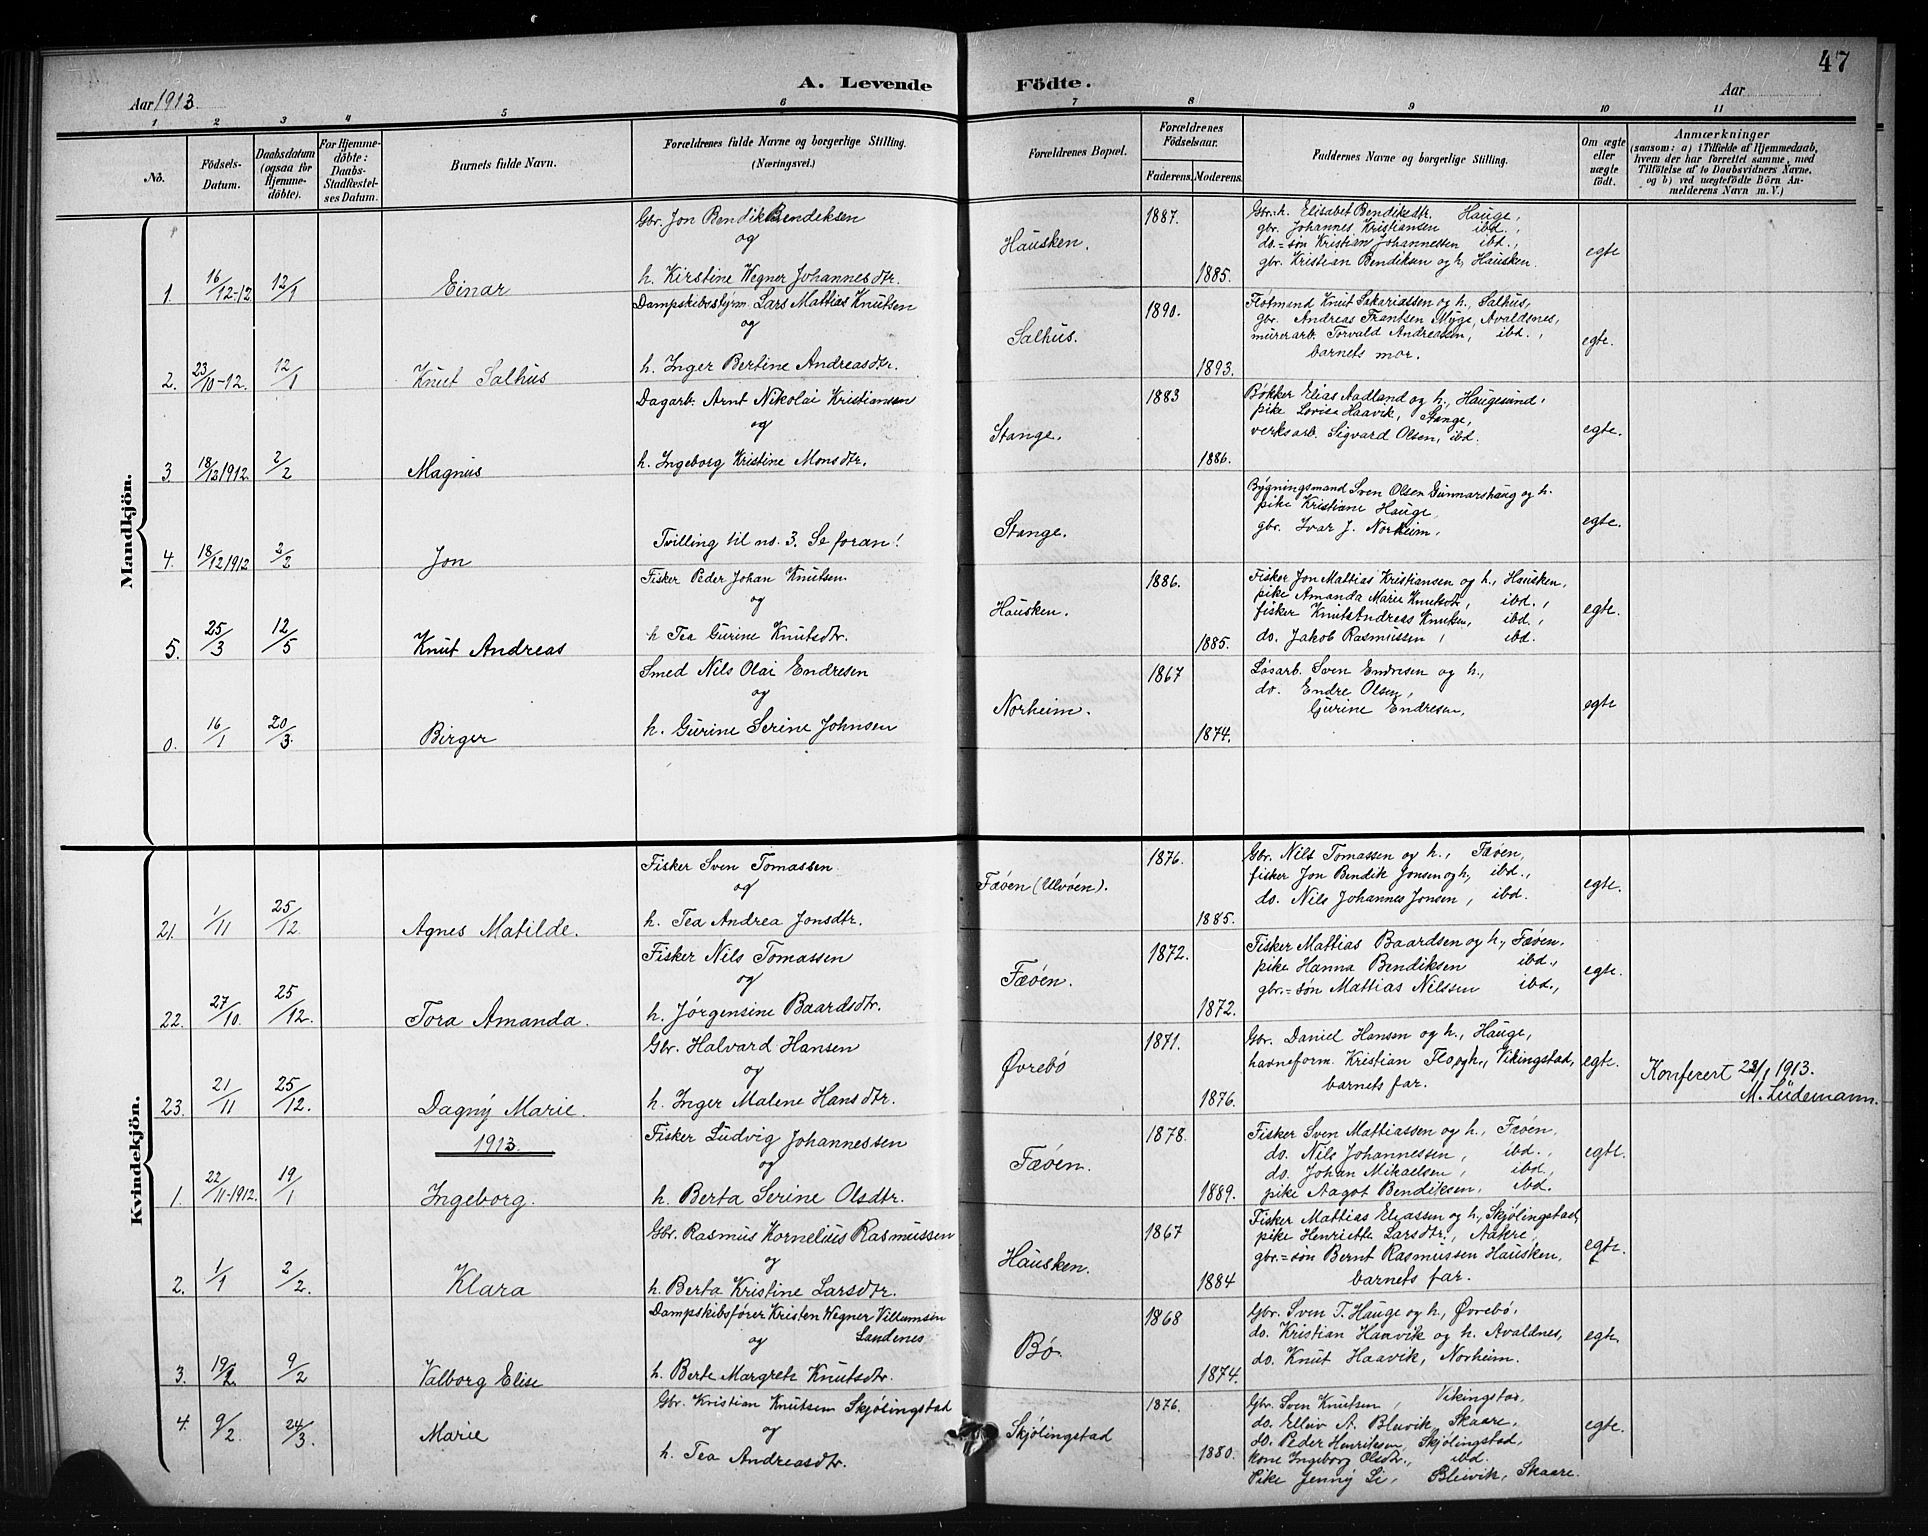 47
A. Levende Födte.
Aar 1913.
Aar
1 2 3 4 5 6 7 8 9 10 11
No.
Födsels-Datum.
Daabsdatum (ogsaa for Hjemmedöbte).
For Hjemmedöbte: Daabs-Stadfæstelses Datum.
Barnets fulde Navn.
Forældrenes fulde Navne og borgerlige Stilling. (Næringsvei.)
Forældrenes Bopæl.
Forældrenes Födselsaar.
Faderens. Moderens.
Faddernes Navne og borgerlige Stilling.
Om ægte eller uægte födt.
Anmærkninger (saasom: a) i Tilfælde af Hjemmedaab, hvem der har forrettet samme, med Tilföielse af to Daabsvidners Navne, og b) ved uægtefödte Börn Anmelderens Navn m. V.)
Mandkjön.
1. 16/12-12. 12/1 Einar
Gbr. Jon Bendik Bendiksen
og
h. Kirstine Wegner Johannesdtr.
Hausken. 1887. 1885.
Gbr. h. Elisabet Bendiksdtr. Hauge,
gbr. Johannes Kristiansen ibd.,
do.=søn Kristian Johannessen ibd.,
gbr. Kristian Bendiksen og h, Hausken.
egte
2. 23/10-12. 12/1 Knut Salhus
Dampskibsstyrm. Lars Mattias Knutsen
og
h. Inger Bertine Andreasdtr.
Salhus. 1890. 1893.
Fløtmand Knut Sakariassen og h., Salhus,
gbr. Andreas Frantsen Myge, Avaldsnes,
murerarb. Torvald Andreassen, ibd.,
barnets mor.
egte.
3 18/12 1912. 2/2 Magnus
Dagarb. Arnt Nikolai Kristiansen
og
h. Ingeborg Kristine Monsdtr.
Stange. 1883 1886.
Bøkker Elias Aadland og h., Haugesund,
pike Lovise Haavik, Stange,
verksarb. Sigvard Olsen, ibd.
egte.
4. 18/12 1912 2/2 Jon
Tvilling til no. 3. Se foran!
Stange.
Bygningsmand Sven Olsen Gunnarshaug og h.
pike Kristiane Hauge,
gbr. Ivar J. Norheim,
egte.
5. 25/3 12/5 Knut Andreas
Fisker Peder Johan Knutsen
og
h Tea Gurine Knutsdtr.
Hausken. 1886. 1885.
Fisker Jon Mattias Kristiansen og h., Hausken,
pike Amanda Marie Knutsdtr, ibd.,
fisker Knut Andreas Knutsen, ibd.,
do. Jakob Rasmussen, ibd.
egte.
0. 16/1 20/3. Birger
Smed Nils Olai Endresen
og
h. Gurine Serine Johnsen
Norheim. 1867 1874.
Løsarb. Sven Endresen og h.,
do. Endre Olsen,
Gurine Endresen,
egte
Kvindekjön.
21. 1/11 25/12 Agnes Matilde.
Fisker Sven Tomassen
og
h. Tea Andrea Jonsdtr.
Fæøen (Ulvøen). 1876. 1885.
Gbr. Nils Tomassen og h., Fæøen,
fisker Jon Bendik Jonsen og h, ibd.,
do. Nils Johannes Jonsen, ibd.
egte.
22. 27/10. 25/12. Tora Amanda.
Fisker Nils Tomassen
og
h. Jørgensine Baardsdtr.
Fæøen. 1872. 1872.
Fisker Mattias Baardsen og h., Fæøen.
pike Hanna Bendiksen ibd.,
gbr.=søn Mattias Nilssen ibd.,
egte.
23. 21/11 25/12. Dagny Marie.
Gbr. Halvard Hansen
og
h. Inger Malene Hansdtr.
Øvrebö 1871. 1876.
Gbr. Daniel Hansen og h., Hauge,
havneform. Kristian Flo og h., Vikingstad,
barnets far.
egte.
Konferert 22/1 1913.
M. Lüdemann.
1913.
1. 22/11-1912. 19/1 Ingeborg.
Fisker Ludvig Johannessen
og
h. Berta Serine Olsdtr.
Fæøen. 1878. 1889.
Fisker Sven Mattiassen og h., Fæøen,
do. Nils Johannessen, ibd.,
do. Johan Mikaelsen, ibd.,
pike Aagot Bendiksen, ibd.
egte.
2. 1/1 2/2. Klara
Gbr. Rasmus Kornelius Rasmussen
og
h. Berta Kristine Larsdtr.
Hausken. 1867 1884
Fisker Mattias Eliassen og h., Skjølingstad,
pike Henriette Larsdtr., Aakre,
gbr.=søn Bernt Rasmussen Hausken,
barnets far.
egte.
3. 19/2. 9/2 Valborg Elise
Dampskibsfører Kristen Wegner Villumsen
og Sandenes
h. Berte Margrete Knutsdtr.
Bö. 1868 1874.
Gbr. Sven T. Hauge og h., Øvrebö,
do. Kristian Haavik og h. Avaldnes,
do. Knut Haavik, Norheim.
egte.
4. 9/2. 24/3. Marie
Gbr. Kristian Knutsen Skjølingstad
og
h. Tea Andreasdtr.
Skjølingstad 1876. 1880.
Gbr. Sven Knutsen, Vikingstad,
do. Elliv A. Bleivik, Skaare,
do. Peder Henriksen, Skjølingstad,
kone Ingeborg Olsdtr., ibd.
Pike Jenny Li, Bleivik, Skaare.
egte.